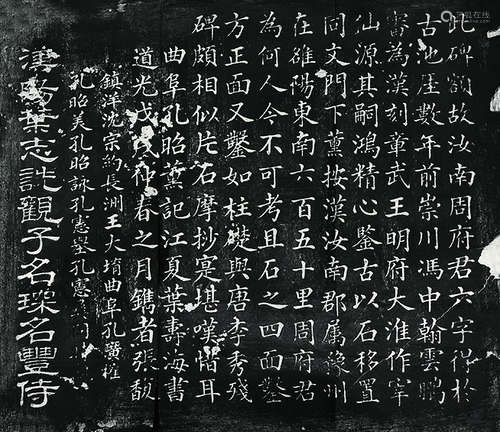 此碑額故汝南周府君六字得於
古池壓數年前崇川馮中翰雲鵬
審為漢刻章武王明府大淮作宰
仙源其嗣鴻精心鑒古以石移置
同文門下薰按漢汝南郡屬豫州
在雒陽東南六百五十里周府君
為何人今不可考且石之四面鑿
方正面又鑿如柱礎與唐李秀殘
碑頗相似片石摩抄寔堪嘆惜耳
曲阜孔昭薰記江夏葉壽海書
道光戊戌仲春之月鐫者張馥
鎮洋沈宗約長洲王大堉曲阜孔憲㩲
孔昭美孔昭詠孔憲鑒孔憲同
漢陽葉志詵觀子名琛名豐侍